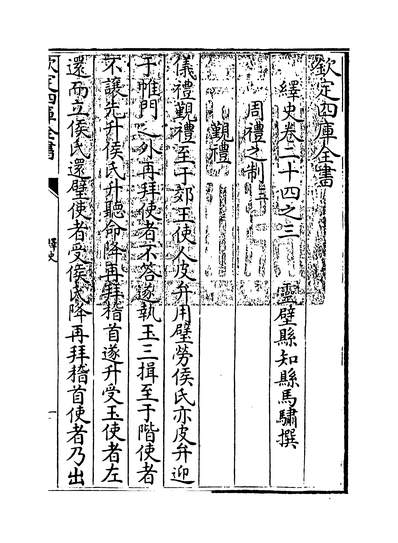 欽定四庫全書
繹史卷二十四之三
靈壁縣知縣馬驌撰
周禮之制三
覲禮
儀禮覲禮至于郊王使人皮弁用璧勞侯氏亦皮弁迎
于帷門之外再拜使者不答遂執玉三揖至于階使者
不讓先升侯氏升聽命降再拜稽首遂升受玉使者左
還而立侯氏還璧使者受侯氏降再拜稽首使者乃出
欽定四庫全書
繹史
一